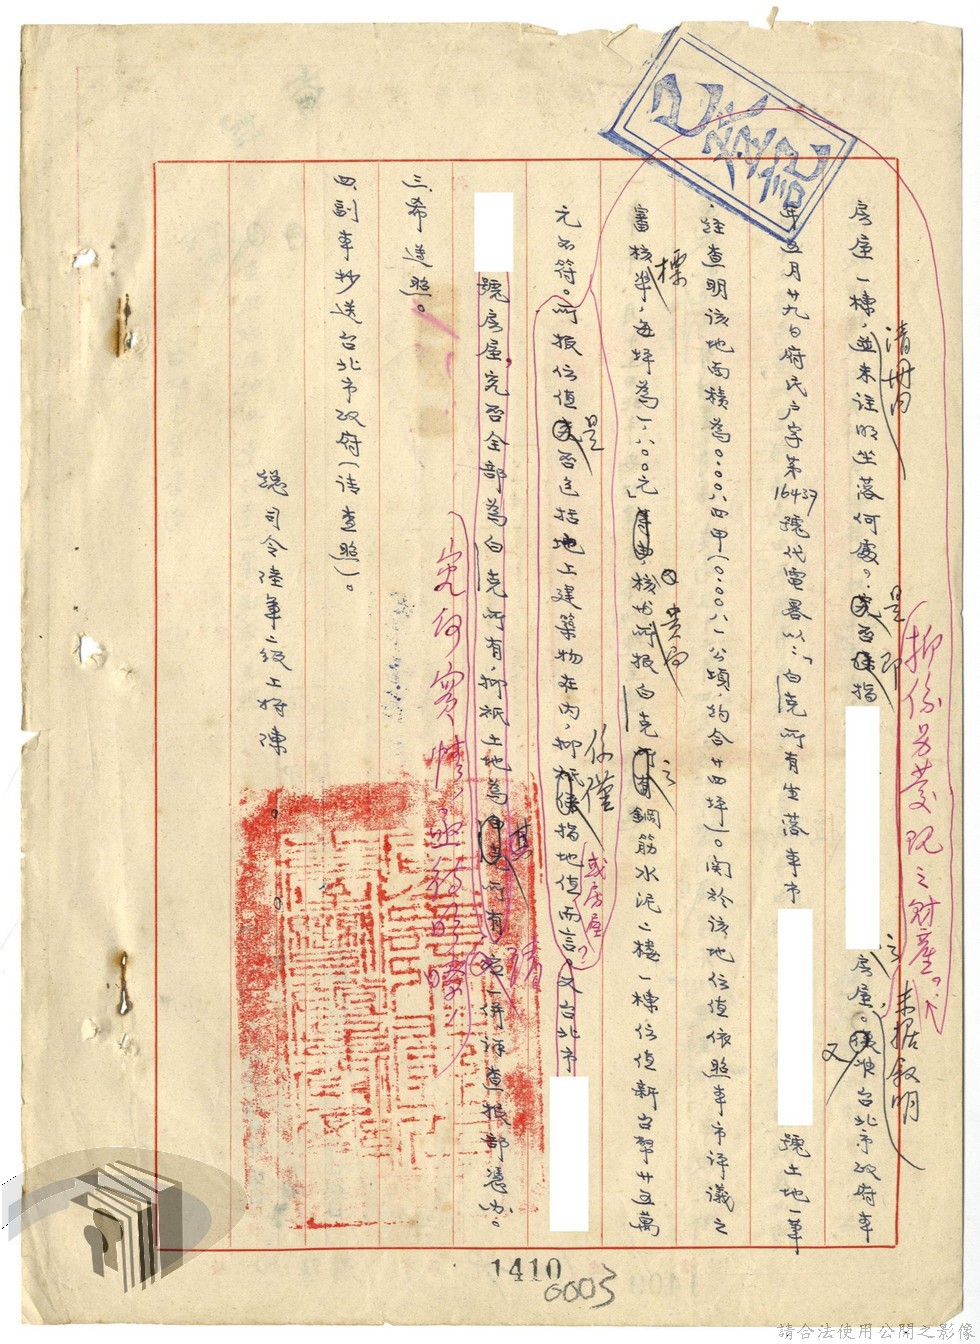 已登記
房屋一棟，並未註明坐落何處。究否係指
房屋。復准台北市政府本
清冊內
是即
抑係另發現之財產。
未据叙明
又
年五月廿九日府民戶字第16437號代電畧以：「白克所有坐落本市
號土地一筆
經查明該地面積為0.00八四甲（0.00八一公頃，約合廿四坪）。関於該地估值依照本市評議之
標
審核準，每坪為一八00元」
核與所报白克
鋼筋水泥二樓一棟估值新台幣廿五萬
貴局
之
元不符。所报估值究否包括地上建築物在內，抑
指地值而言。又台北市
是
係僅
或房屋
號房屋，究否全部為白克所有，抑祇土地為
所有
一併詳查报部憑办。
其
請
究何實情，
三、希遵照。
四、副本抄送台北市政府（请查照）。
總司令陸軍二級上將陳
1410
0003
請合法使用公開之影像